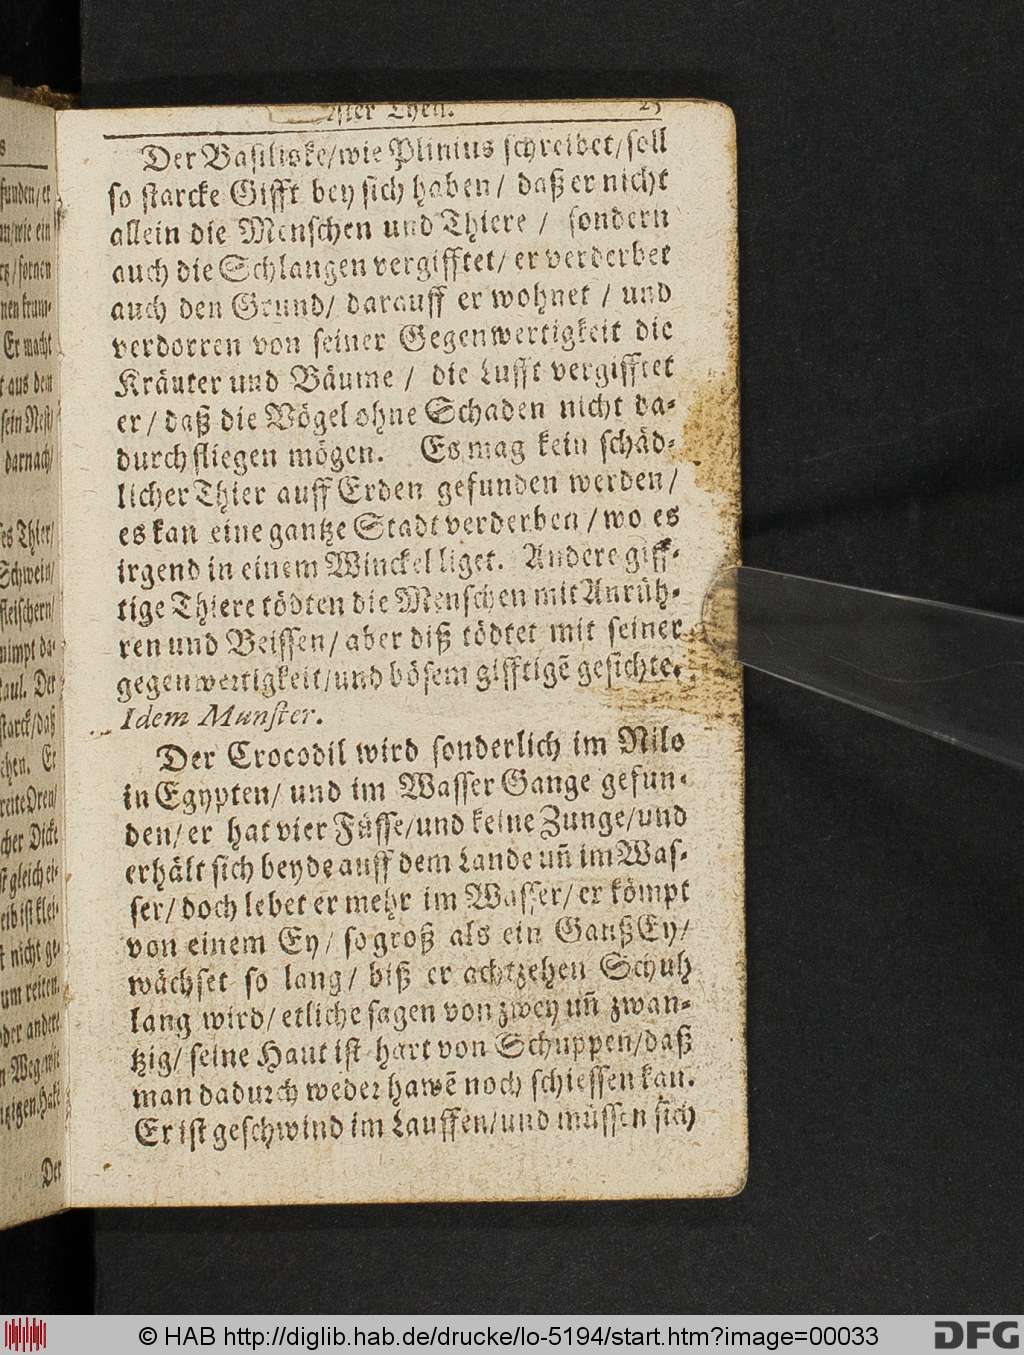 Ister Theil. 25
Der Basiliske/wie Plinius schreibet/soll
so starcke Gifft bey sich haben/ daß er nicht
allein die Menschen und Thiere / sondern
auch die Schlangen vergifftet/ er verderbet
auch den Grund/ darauff er wohnet / und
verdorren von seiner Gegenwertigkeit die
Kräuter und Bäume / die Lufft vergifftet
er/ daß die Vögel ohne Schaden nicht da-
durch fliegen mögen. Es mag kein schäd-
licher Thier auff Erden gefunden werden/
es kan eine gantze Stadt verderben / wo es
irgend in einem Winckel liget. Andere giff-
tige Thiere tödten die Menschen mit Anrüh-
ren und Beissen/ aber diß tödtet mit seiner
gegenwertigkeit/und bösem gifftigē gesichte.
Idem Munster.
Der Crocodil wird sonderlich im Nilo
in Egypten/ und im Wasser Gange gefun-
den/ er hat vier Füsse/und keine Zunge/und
erhält sich beyde auff dem Lande uñ im Was-
ser/ doch lebet er mehr im Wasser/ er kömpt
von einem Ey/ so groß als ein Ganß Ey/
wächset so lang/ biß er achtzehen Schuh
lang wird/ etliche sagen von zwey uñ zwan-
tzig/ seine Haut ist hart von Schuppen/daß
man dadurch weder hawē noch schiessen kan.
Er ist geschwind im Lauffen/und müssen sich
funden/ er
wie ein
fornen
Er macht
t aus dem
sein Nest/
darnach/
es Thier/
Schwein/
fleischern/
nimpt da-
aul. Der
starck/daß
chen. Er
cher Dicke
st gleich ei-
eib ist klei-
t nicht ge-
um reiten.
der andere
Der
© HAB http://diglib.hab.de/drucke/lo-5194/start.htm?image=00033
DFG